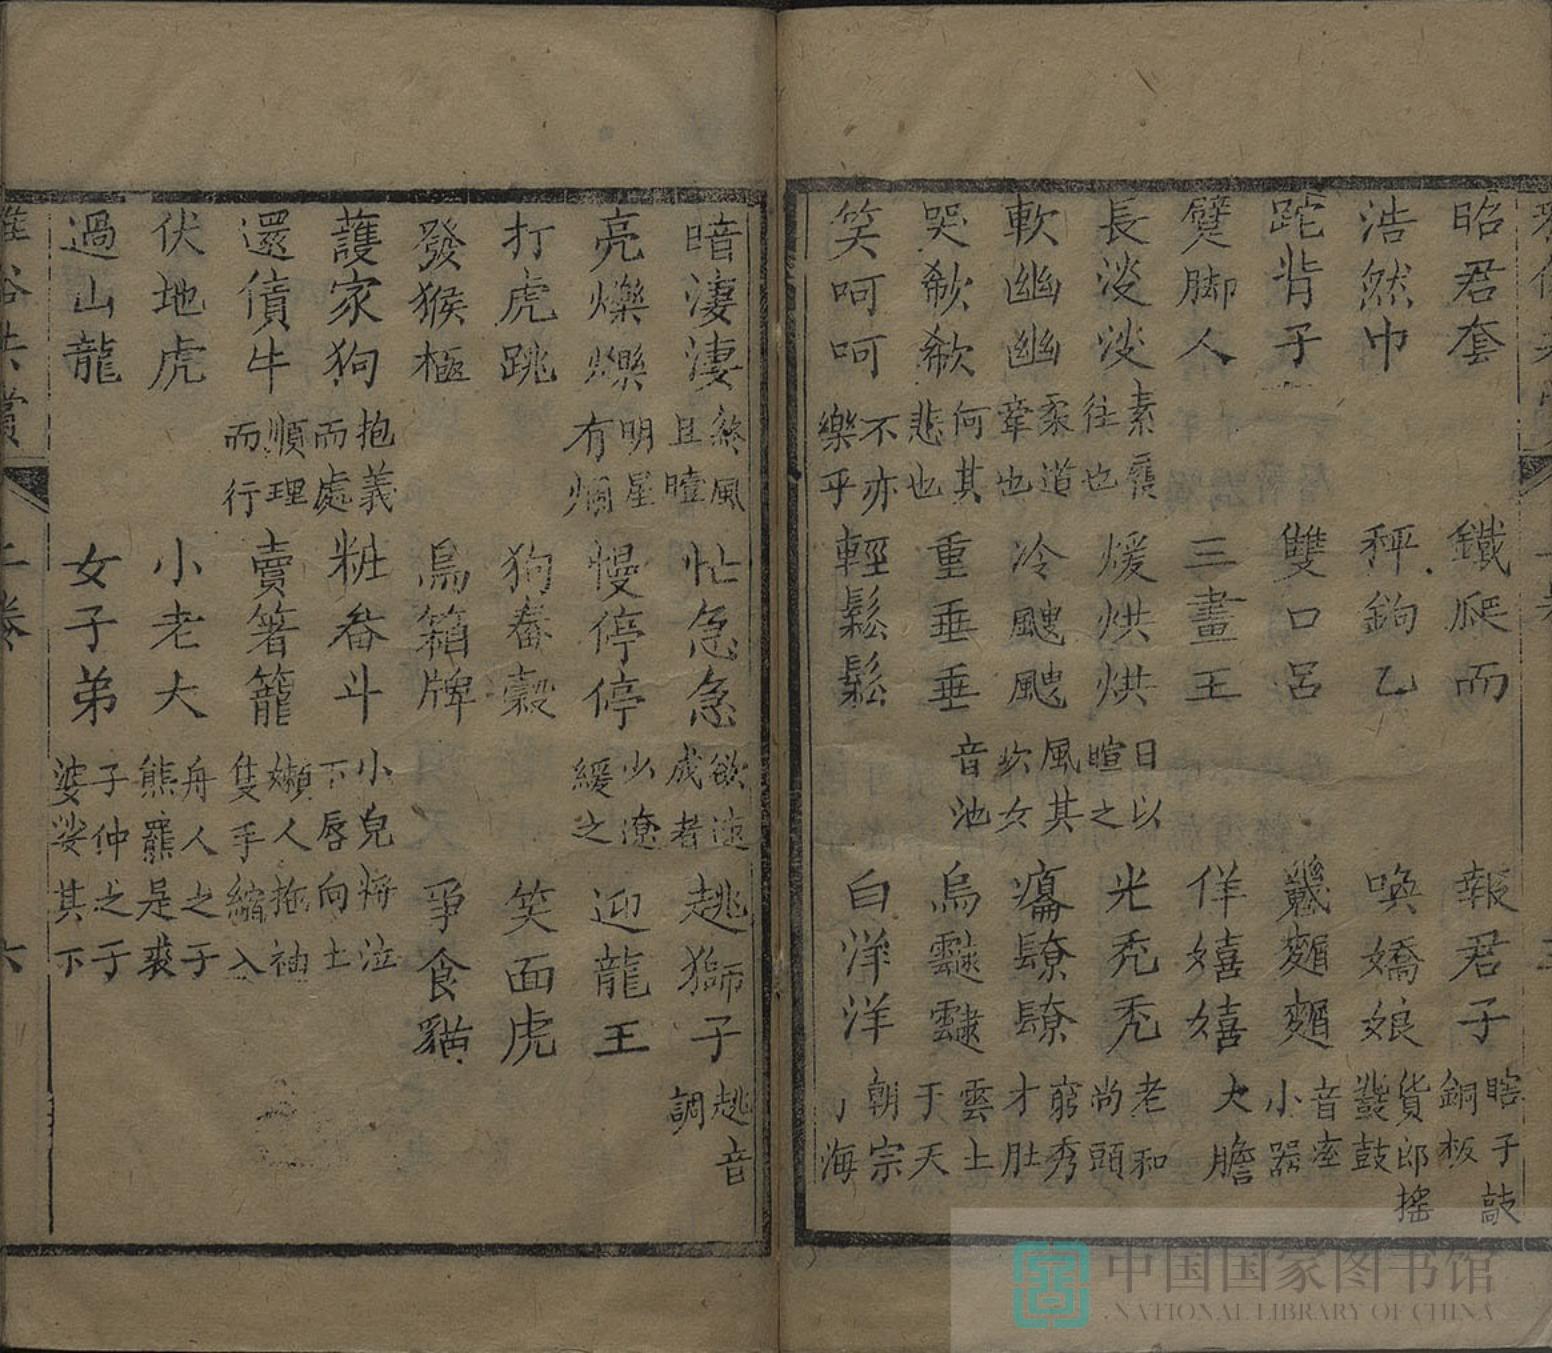 昭君套 鐵爬而 報君子 瞎子敲銅板
浩然巾 秤鉤乙 喚嬌娘 貨郎搖鼗鼓
跎背子 雙口呂 音坴小器
躄脚人 三畫王 佯嬉嬉 大膽
長淡淡 素履往也 煖烘烘 日以暄之 光禿禿 老和尚頭
軟幽幽 柔道牽也 冷颼颼 風其吹女 窮秀才肚
哭欷欷 何其悲也 重垂垂 音池 烏靆靆 雲上于天
笑呵呵 不亦樂乎 輕鬆鬆 白洋洋 朝宗于海
暗淒淒 終風且曀 忙急急 欲速成者 趒獅子 趒音調
亮爍爍 明星有爛 慢停停 少遼緩之 迎龍王
打虎跳 狗畚穀 笑面虎
發猴極 鳥籠牌 爭食貓
護家狗 抱義而處 粧畚斗 小兒將泣下唇向上
還債牛 順理而行 賣箸籠 嬾人拖袖隻手縮入
伏地虎 小老大 舟人之子熊羆是裘
過山龍 女子弟 子仲之子婆娑其下
雅俗共賞 上卷 六
中国国家图书馆
NATIONAL LIBRARY OF CHINA